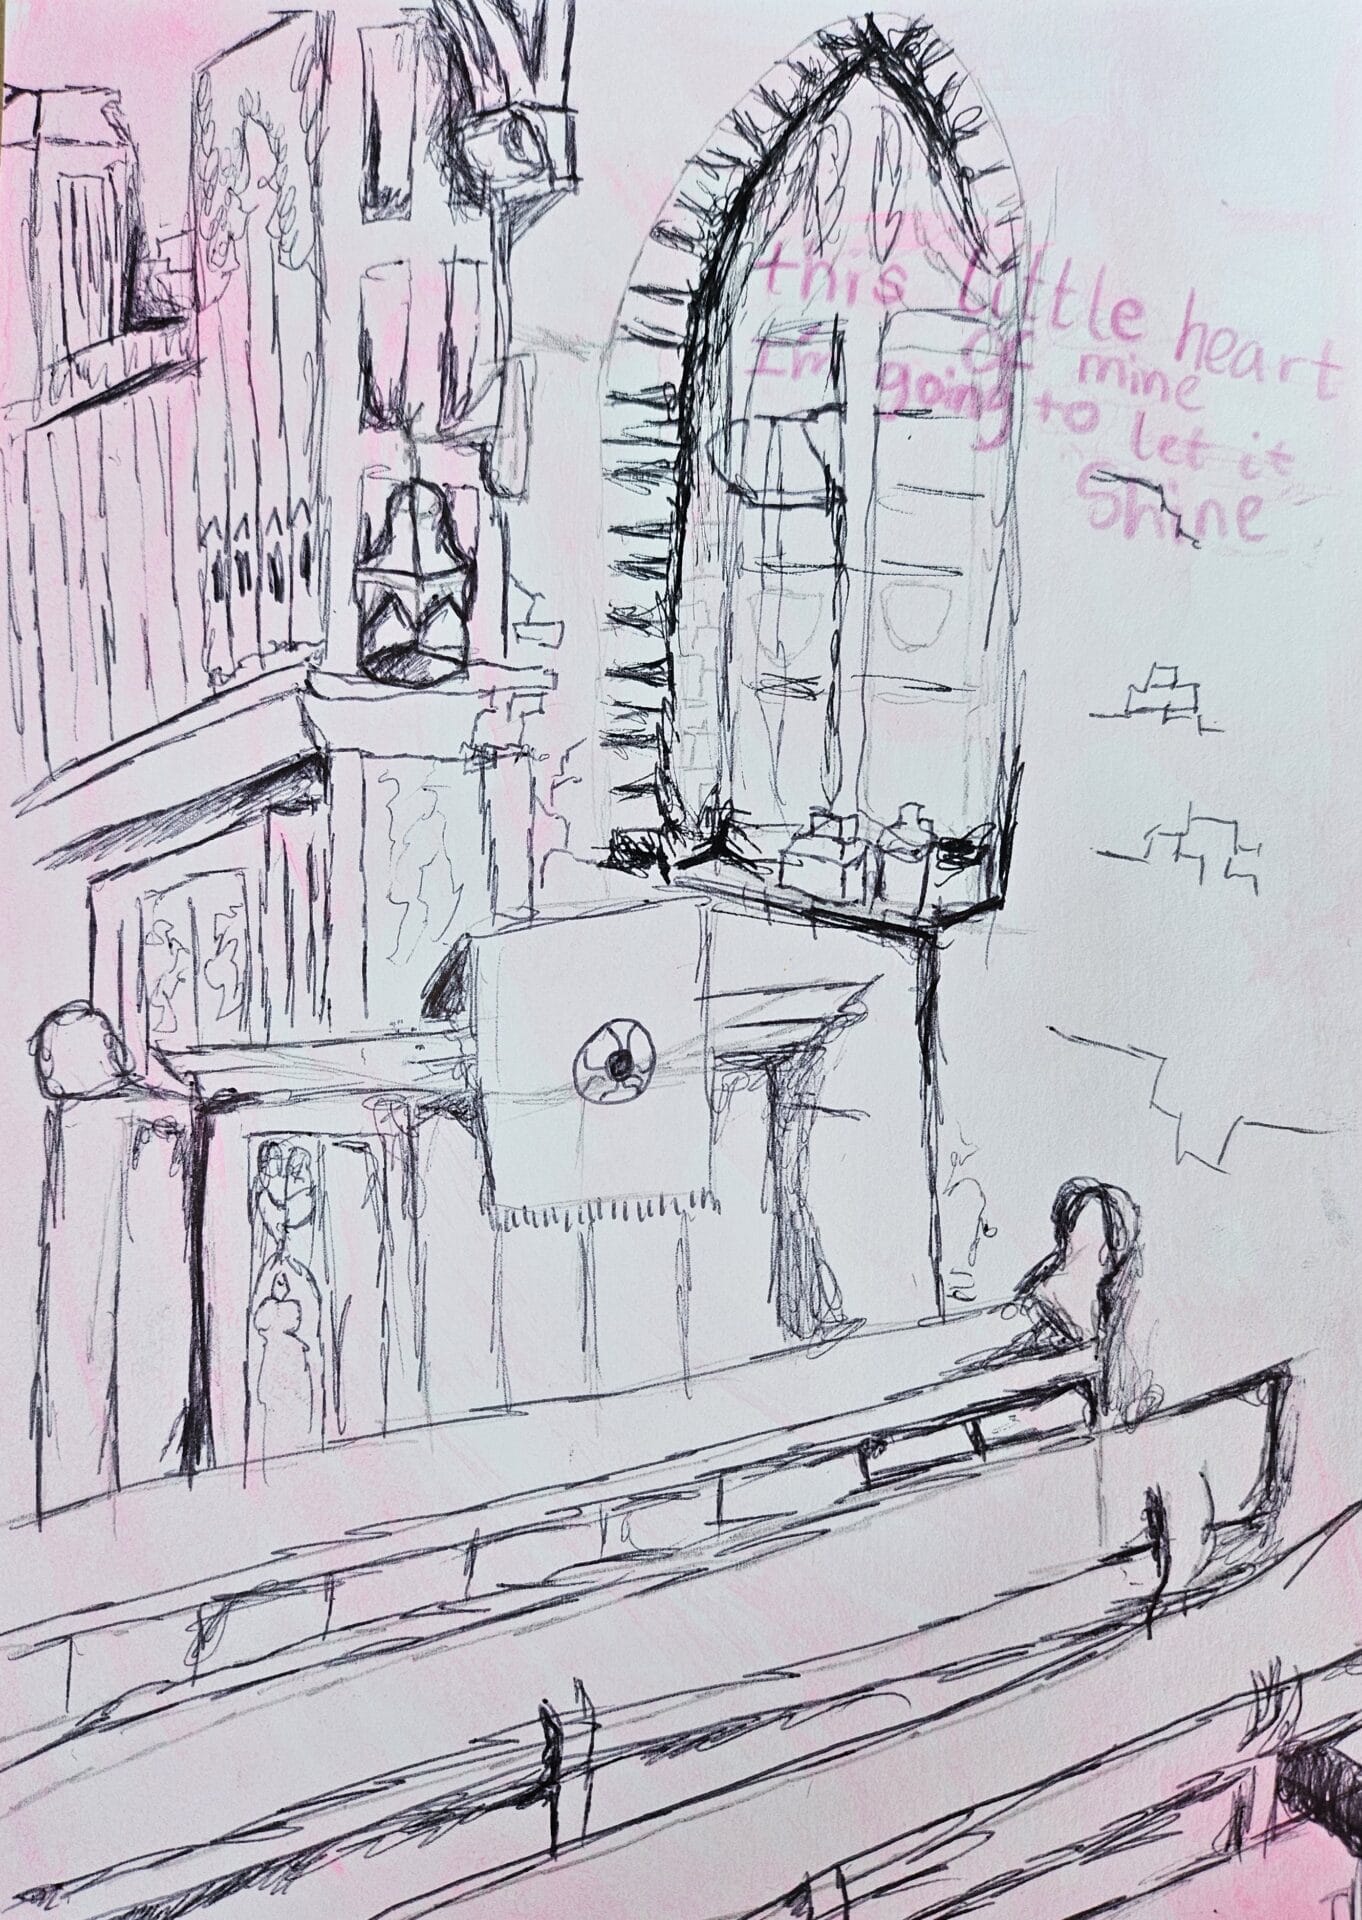 this little heart
of mine
I'm going to let it
Shine